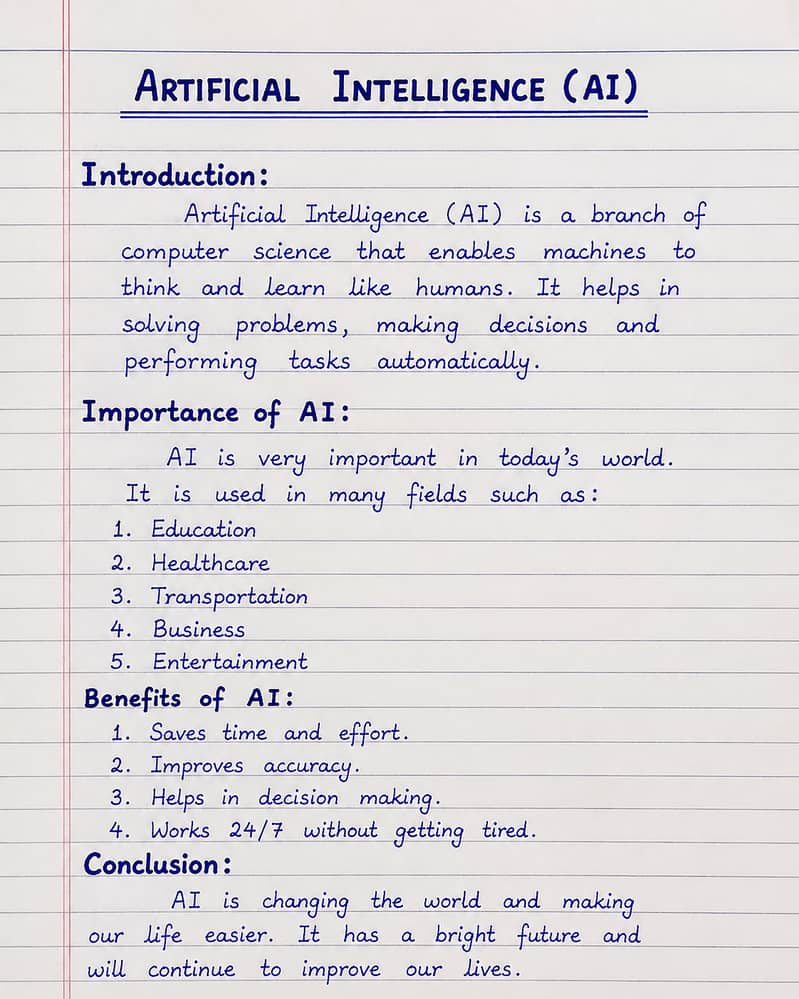 ARTIFICIAL INTELLIGENCE (AI)
Introduction:
Artificial Intelligence (AI) is a branch of
computer science that enables machines to
think and learn like humans. It helps in
solving problems, making decisions and
performing tasks automatically.
Importance of AI:
AI is very important in today's world.
It is used in many fields such as:
1. Education
2. Healthcare
3. Transportation
4. Business
5. Entertainment
Benefits of AI:
1. Saves time and effort.
2. Improves accuracy.
3. Helps in decision making.
4. Works 24/7 without getting tired.
Conclusion:
AI is changing the world and making
our life easier. It has a bright future and
will continue to improve our lives.